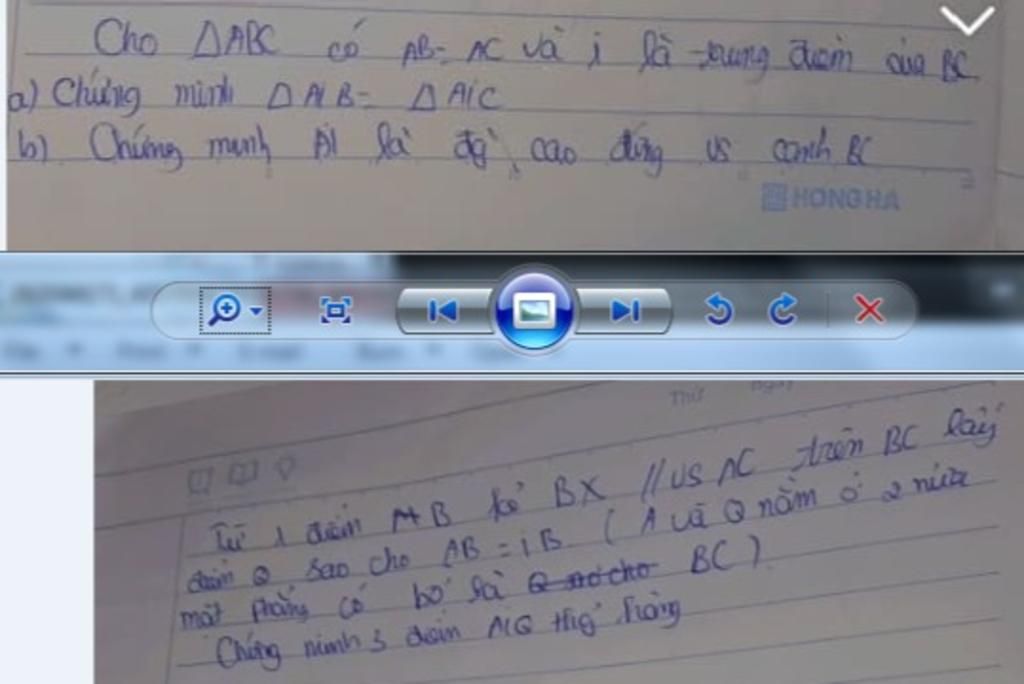 Cho △ABC có AB = AC và i là trung điểm của BC
a) Chứng minh △AIB = △AIC
b) Chứng minh AI là đg cao đứng vs cạnh BC
HONG HA
Thứ ngày
Từ 1 điểm B kẻ BX // vs AC trên BC lấy
điểm Q sao cho AB = iB (A và Q nằm ở 2 nửa
mặt phẳng có bờ là BC)
Chứng minh 3 điểm AIQ thg hàng